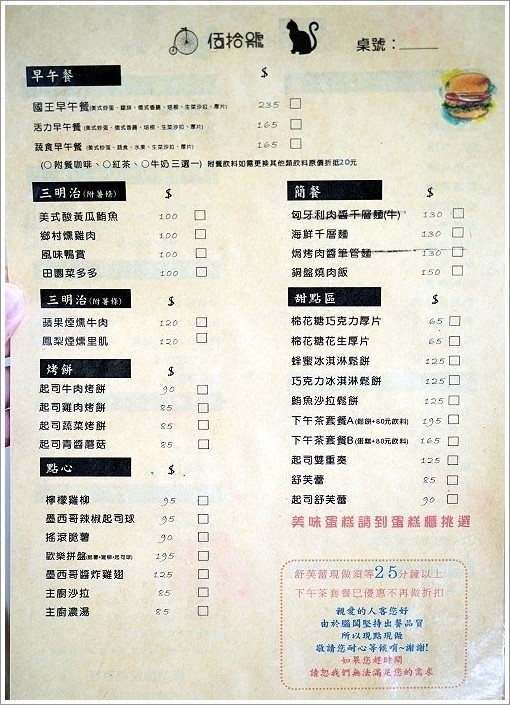 佰拾號
桌號：
早午餐 $
國王早午餐(美式炒蛋、鹽餅、義式香腸、培根、生菜沙拉、厚片) 235
活力早午餐(美式炒蛋、義式香腸、培根、生菜沙拉、厚片) 165
蔬食早午餐(美式炒蛋、蔬食、水果、生菜沙拉、厚片) 165
(○附餐咖啡、○紅茶、○牛奶三選一) 附餐飲料如需更換其他類飲料原價折抵20元
三明治(附薯條) $
美式酸黃瓜鮪魚 100
鄉村燻雞肉 100
風味鴨賞 100
田園菜多多 100
三明治(附薯條) $
蘋果煙燻牛肉 120
鳳梨煙燻里肌 120
烤餅 $
起司牛肉烤餅 90
起司雞肉烤餅 85
起司蔬菜烤餅 85
起司青醬蘑菇 85
點心 $
檸檬雞柳 95
墨西哥辣椒起司球 95
搖滾脆薯 90
歡樂拼盤(脆薯+雞柳+起司球) 195
墨西哥醬炸雞翅 125
主廚沙拉 85
主廚濃湯 85
簡餐 $
匈牙利肉醬千層麵(牛) 130
海鮮千層麵 130
焗烤肉醬筆管麵 130
銅盤燒肉飯 150
甜點區 $
棉花糖巧克力厚片 65
棉花糖花生厚片 65
蜂蜜冰淇淋鬆餅 125
巧克力冰淇淋鬆餅 125
鮪魚沙拉鬆餅 125
下午茶套餐A(鬆餅+80元飲料) 195
下午茶套餐B(蛋糕+80元飲料) 165
起司雙重奏 125
舒芙蕾 85
起司舒芙蕾 90
美味蛋糕請到蛋糕櫃挑選
舒芙蕾現做須等25分鐘以上
下午茶套餐已優惠不再做折扣
親愛的人客您好
由於腦闆堅持出餐品質
所以現點現做
敬請您耐心等候唷~謝謝!
如果您趕時間
請恕我們無法滿足您的需求